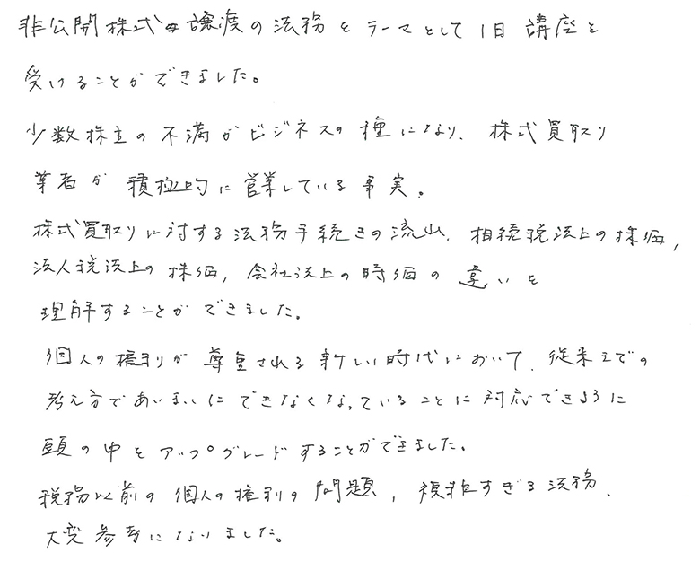 非公開株式の譲渡の法務をテーマとして1日講座を
受けることができました。
少数株主の不満がビジネスの種になり、株式買取り
業者が積極的に営業している事実。
株式買取りに対する法務手続きの流れ、相続税法上の株価,
法人税法上の株価, 会社法上の時価の違いを
理解することができました。
個人の権利が尊重される新しい時代において、従来までの
考え方であいまいにできなくなっていることに対応できるように
頭の中をアップグレードすることができました。
税務以前の個人の権利の問題, 複雑すぎる法務、
大変参考になりました。